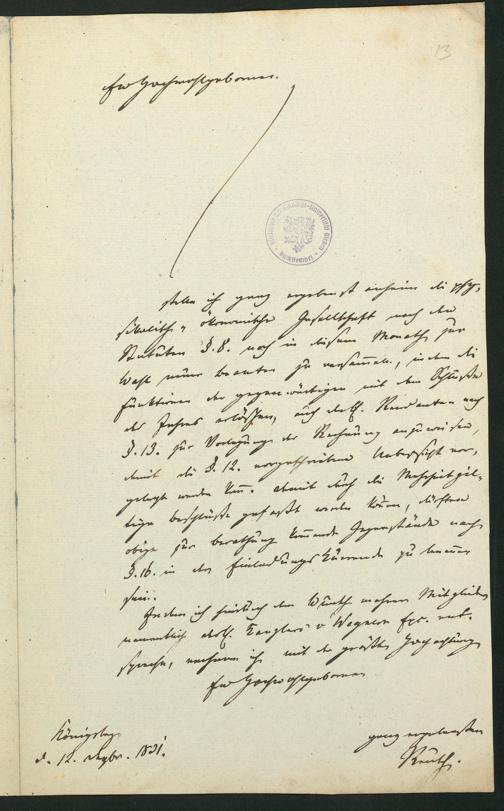 13
Ew Hochwohlgeboren.
stelle ich ganz ergebenst anheim die phy-
sikalisch-ökonomische Gesellschaft nach den
Statuten §. 8. noch in diesem Monath zur
Wahl neuer Beamten zu versammeln, indem die
Funktionen der gegenwärtigen mit dem Schlusse
des Jahres erlöschen, auch den Rendanten nach
§. 13. zur Vorlegung der Rechnung anzuweisen,
damit die §. 12. vorgeschriebene Uebersicht vor-
gelegt werden kann. Damit auch die
tige Beschlüsse gefaßt werden können, dürften
obige zur Berathung kommende Gegenstände nach
§. 16. in der Einladungs Kurrende zu benennen
sein.
Indem ich hiedurch dem Wunsche mehrer Mitglieder
namentlich des Kanzlers v Wegnern Exc. ent-
spreche, verharre ich mit der größten Hochachtung
Ew Hochwohlgeboren
Königsberg
d. 12. Dezbr. 1831.
ganz ergebenster